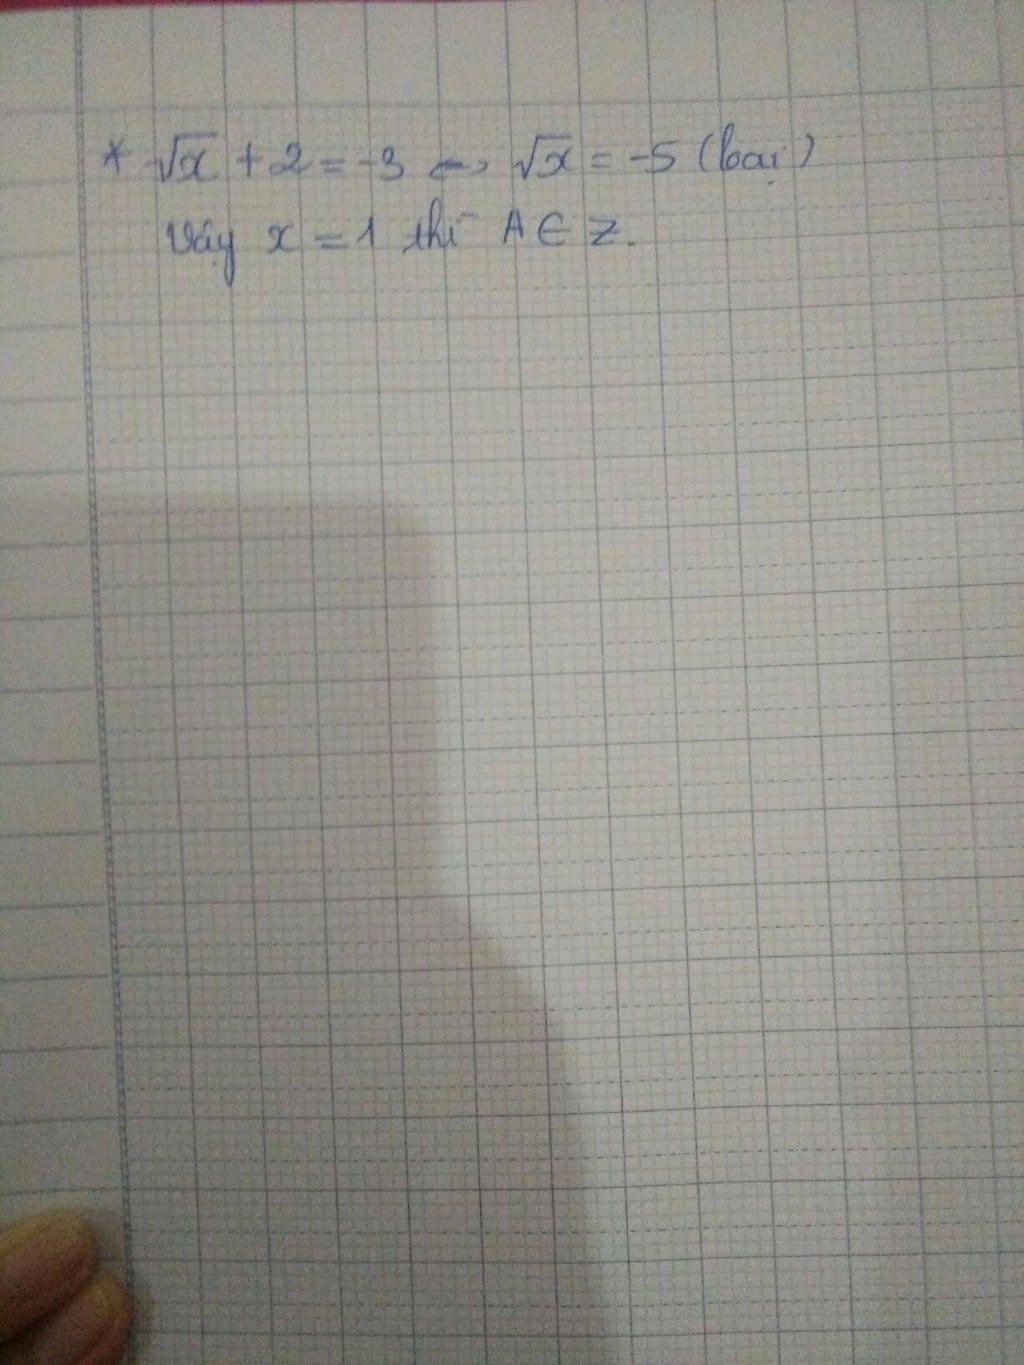 * √x + 2 = -3 <=> √x = -5 (loại)
Vậy x = 1 thì A ∈ Z.